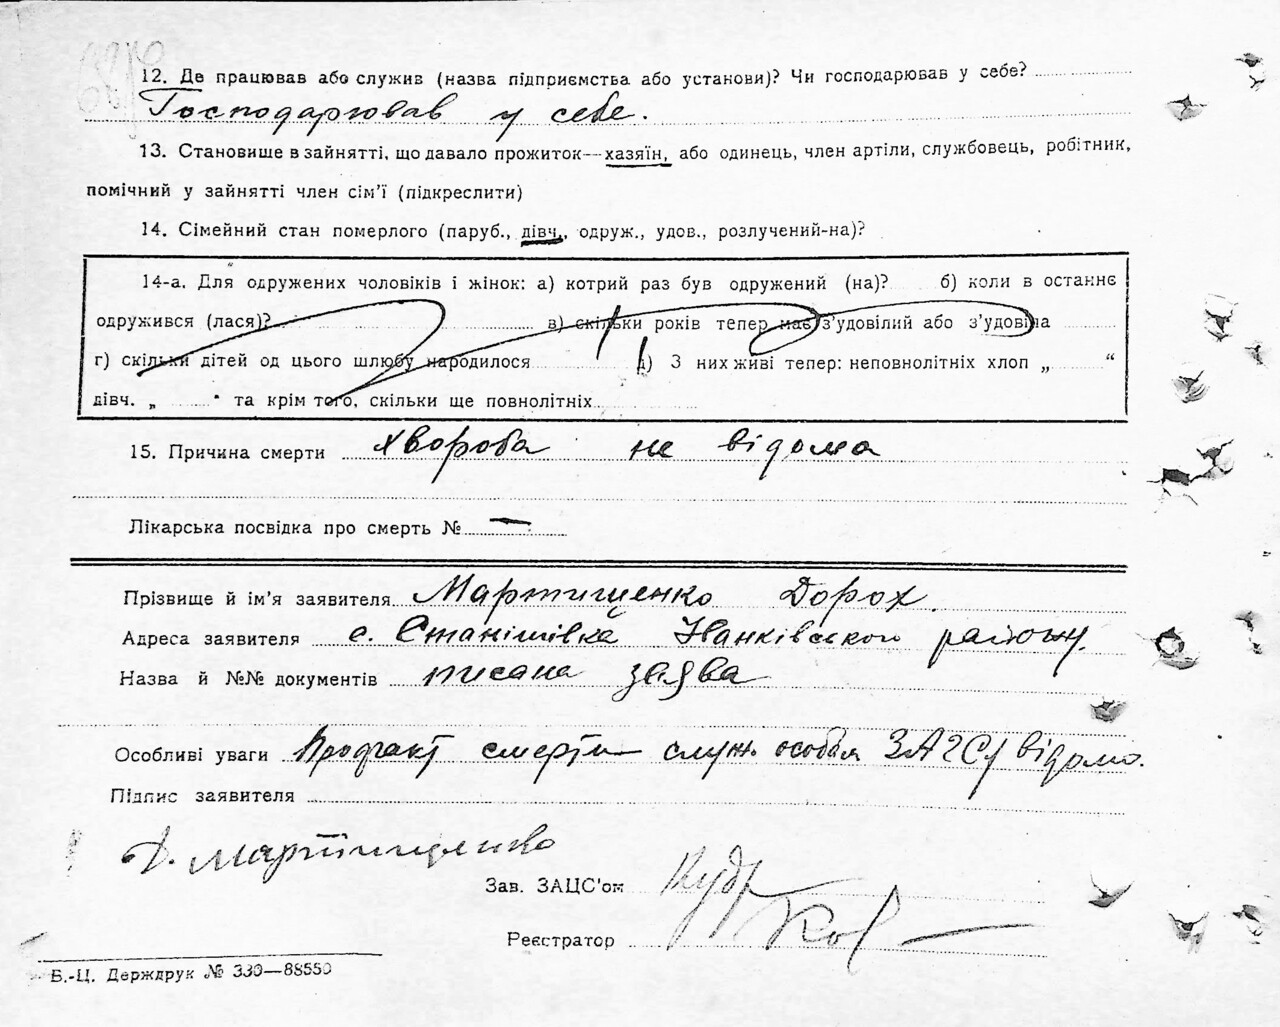 12. Де працював або служив (назва підприємства або установи)? Чи господарював у себе?
Господарював у себе.
13. Становище в зайнятті, що давало прожиток—хазяїн, або одинець, член артіли, службовець, робітник,
помічний у зайнятті член сім'ї (підкреслити)
14. Сімейний стан померлого (паруб., дівч., одруж., удов., розлучений-на)?
14-а. Для одружених чоловіків і жінок: а) котрий раз був одружений (на)? б) коли в останнє
одружився (лася)? в) скільки років тепер має з'удовілий або з'удовіла
г) скільки дітей од цього шлюбу народилося д) З них живі тепер: неповнолітніх хлоп „ “
дівч. „ “ та крім того, скільки ще повнолітніх
15. Причина смерти хвороба не відома
Лікарська посвідка про смерть № —
Прізвище й ім'я заявителя Мартищенко Дорох.
Адреса заявителя с. Станішівка Іванківського району.
Назва й №№ документів писана заява
Особливі уваги Профакт смерти служ. особам ЗАГСу відомо.
Підпис заявителя
Д. Мартищенко
Зав. ЗАЦС'ом
Реєстратор
Б.-Ц. Держдрук № 330—88550